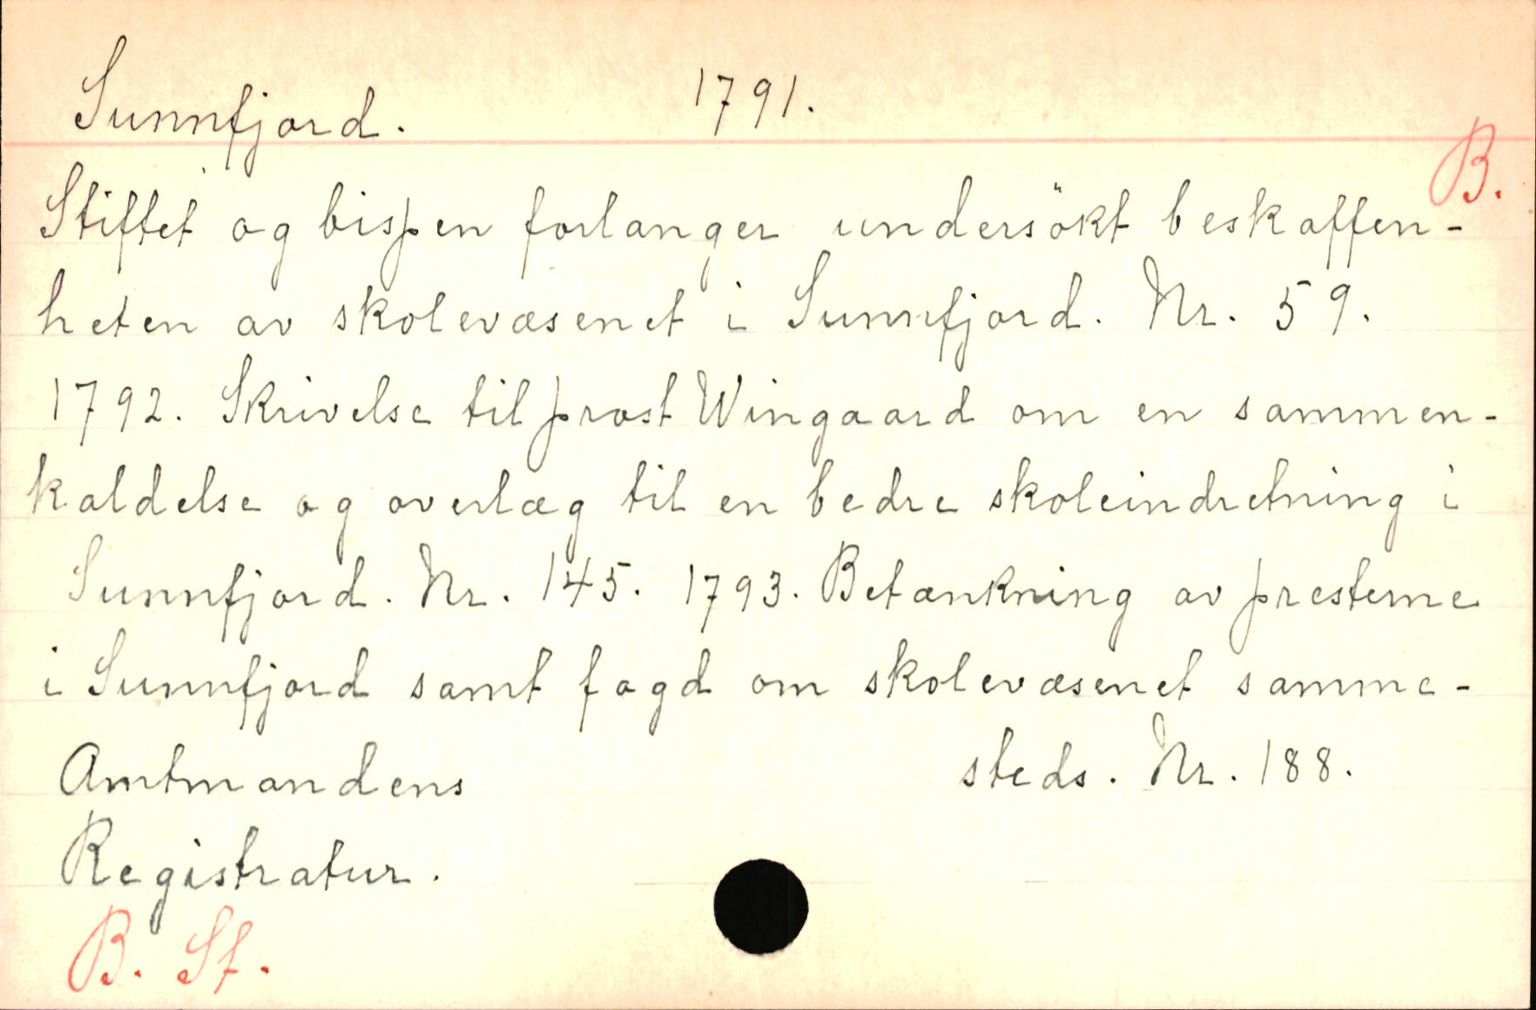 Sunnfjord. 1791.
B.
Stiftet og bispen forlanger undersökt beskaffen-
heten av skolevæsenet i Sunnfjord. Nr. 59.
1792. Skrivelse til prost Wingaard om en sammen-
kaldelse og overlæg til en bedre skoleindretning i
Sunnfjord. Nr. 145. 1793. Betænkning av presterne
i Sunnfjord samt fogd om skolevæsenet samme-
Amtmandens steds. Nr. 188.
Registratur.
B. Sf.